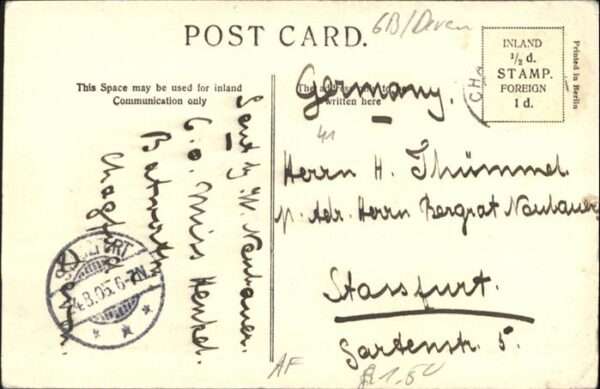 GB/Devon
POST CARD.
INLAND
½ d.
STAMP.
FOREIGN
1 d.
Printed in Berlin
This Space may be used for inland
Communication only
The address to be
written here
Germany.
Herrn H. Thümmel
p. Adr. Herrn Bergrat Neubauer
Stassfurt.
Gartenstr. 5.
Sent by W. Neubauer.
c.o. Miss Henkel.
Chagford
Devon.
4.8.05. 6-7N
CHA
41
AF
£1.50